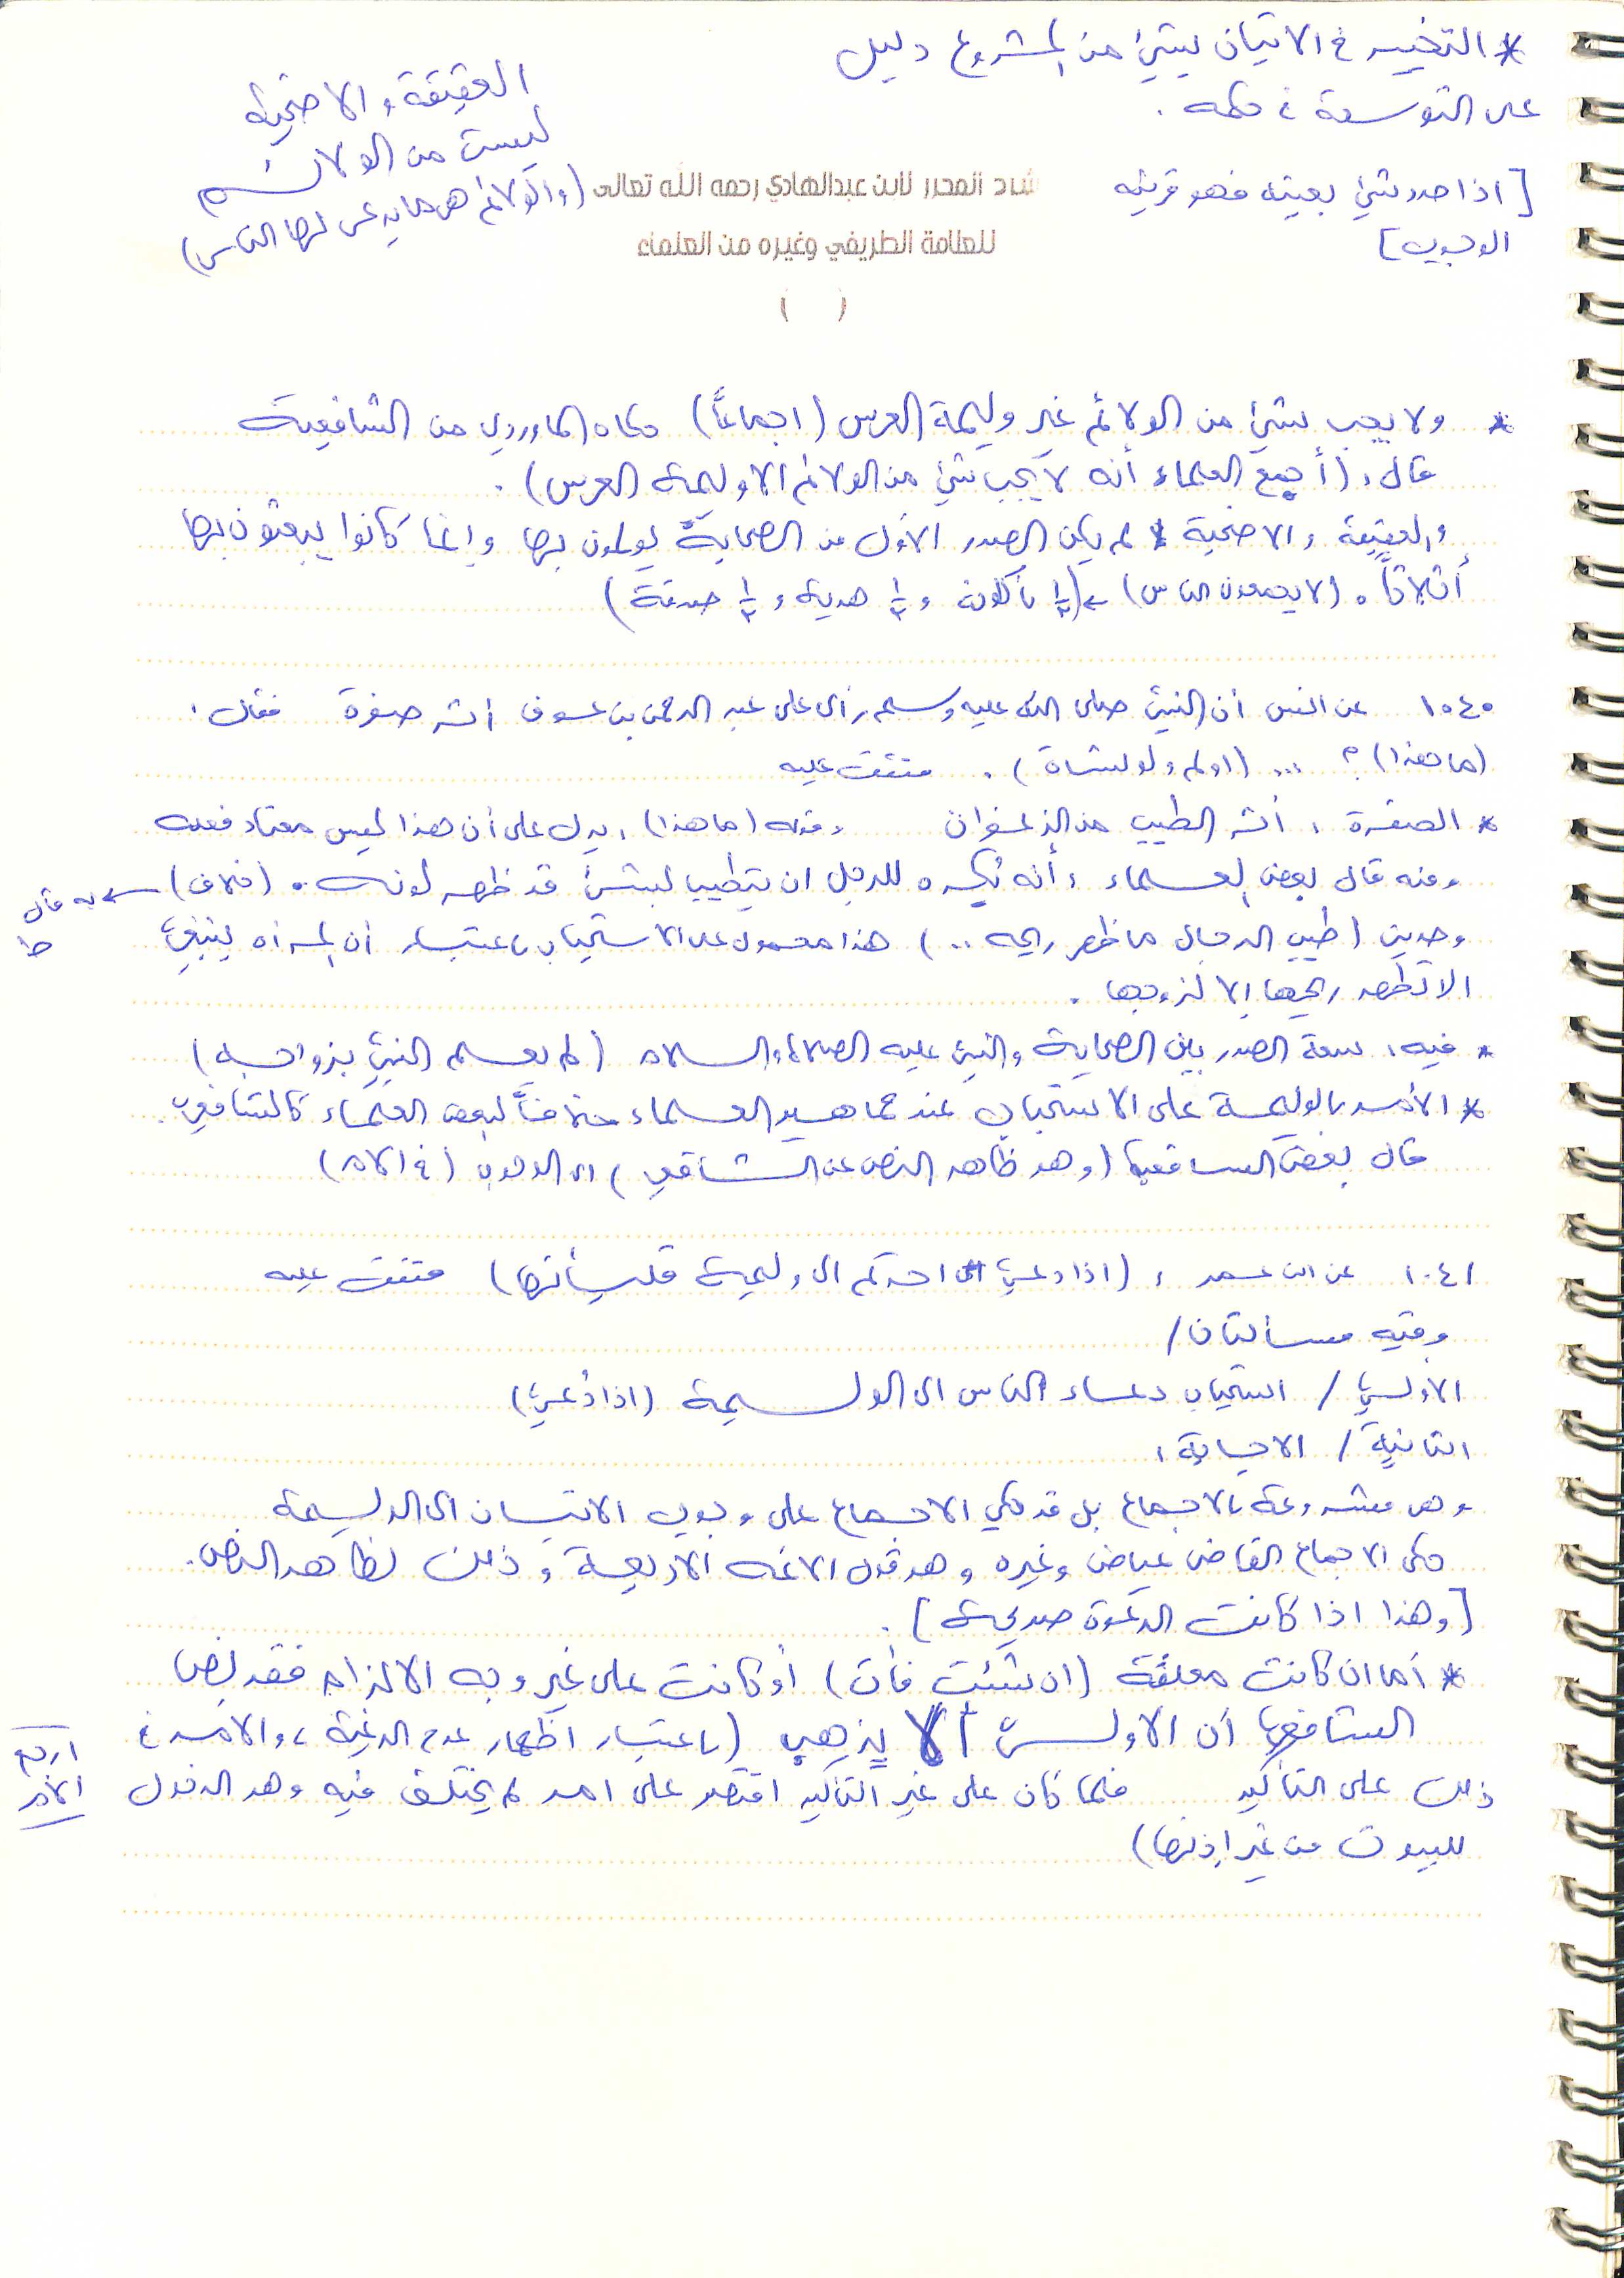 * التخيير في الاتيان بشيء من المشروع دليل
على التوسعة في حكمه .
[اذا حدد شيء بعينه فهو قرينه
الوجوب]
العقيقة والاضحية
ليست من الولائم
(والولائم هي ما يدعى لها الناس)
شرح المحرر لابن عبدالهادي رحمه الله تعالى
للعلامة الطريفي وغيره من العلماء
( )
* ولا يجب شيء من الولائم غير وليمة العرس (اجماعاً) حكاه الماوردي من الشافعية
قال: (أجمع العلماء أنه لا يجب شيء من الولائم الا وليمة العرس) .
والعقيقة والاضحية لم يكن الصدر الأول من الصحابة يولمون بها وإنما كانوا يبعثون بها
أثلاثاً . (لا يجمعون الناس) ← (⅓ يأكلونه و ⅓ هدية و ⅓ صدقة)
١٠٤٠ عن انس أن النبي صلى الله عليه وسلم رأى على عبد الرحمن بن عوف أثر صفرة فقال:
(ما هذا) ؟ ... (اولم ولو بشاة) . متفق عليه
* الصفرة : أثر الطيب من الزعفران وقوله (ما هذا) : يدل على أن هذا ليس معتاد فعله
ومنه قال بعض العلماء : أنه يكره للرجل ان يتطيب بشيء قد ظهر لونه . (خلاف) ← به قال
ط
وحديث (طيب الرجال ما ظهر ريحه ..) هذا محمول على الاستحباب باعتبار أن المرأه ينبغي
الا تظهر ريحها إلا لزوجها .
* فيه: سعة الصدر بين الصحابة والنبي عليه الصلاة والسلام (لم يعلم النبي بزواجه)
* الأمر بالوليمة على الاستحباب عند جماهير العلماء خلافاً لبعض العلماء كالشافعي .
قال بعض الشافعية (وهو ظاهر النص عن الشافعي) الى الوجوب (في الأم)
١٠٤١ عن ابن عمر : (اذا دعي احدكم الى وليمة فليأتها) متفق عليه
وفيه مسألتان /
الأولى / استحباب دعاء الناس الى الوليمة (اذا دُعي)
الثانية / الاجابة :
وهي مشروعة بالاجماع بل قد حكي الاجماع على وجوب الاتيان الى الوليمة
حكى الاجماع القاضي عياض وغيره وهو قول الائمه الأربعة وذلك لظاهر النص .
[وهذا اذا كانت الدعوة صريحة] .
* أما ان كانت معلقة (ان شئت فأت) أو كانت على غير وجه الالزام فقد نص
الشافعية أن الأولى ألا يذهب (باعتبار اظهار عدم الرغبة ، والأمر في
ذلك على التأكيد فلما كان على غير التأكيد اقتصر على امر لم يختلف فيه وهو الدخول
ارجع
الأم
للبيوت من غير إذنها)